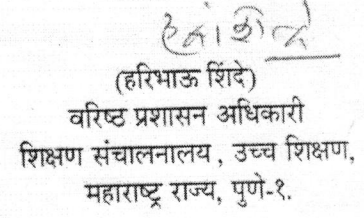 (हरिभाऊ शिंदे)
वरिष्ठ प्रशासन अधिकारी
शिक्षण संचालनालय, उच्च शिक्षण,
महाराष्ट्र राज्य, पुणे-१.